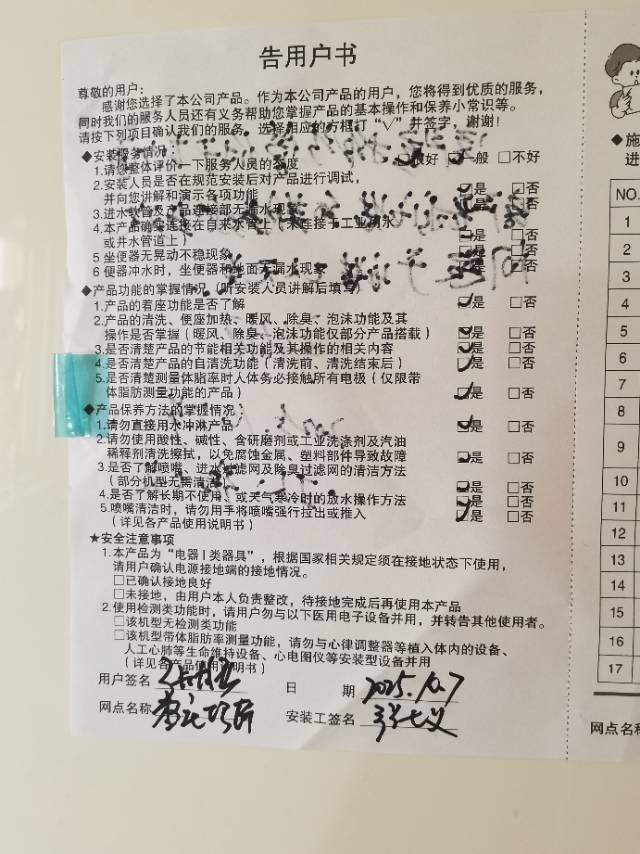 告用户书
尊敬的用户：
感谢您选择了本公司产品。作为本公司产品的用户，您将得到优质的服务，
同时我们的服务人员还有义务帮助您掌握产品的基本操作和保养小常识等。
请按下列项目确认我们的服务。选择相应的方框打“√”并签字，谢谢！
◆安装服务情况：
1.请您整体评价一下服务人员的态度 □很好 □一般 □不好
2.安装人员是否在规范安装后对产品进行调试，
并向您讲解和演示各项功能 ☑是 □否
3.进水软管及产品连接部无漏水现象 ☑是 □否
4.本产品确实连接在自来水管上（未连接于工业用水
或井水管道上） ☑是 □否
5 坐便器无晃动不稳现象 ☑是 □否
6 便器冲水时，坐便器和地面无漏水现象 ☑是 □否
◆产品功能的掌握情况（听安装人员讲解后填写）
1.产品的着座功能是否了解 ☑是 □否
2.产品的清洗、便座加热、暖风、除臭、泡沫功能及其
操作是否掌握（暖风、除臭、泡沫功能仅部分产品搭载） ☑是 □否
3.是否清楚产品的节能相关功能及其操作的相关内容 ☑是 □否
4.是否清楚产品的自清洗功能（清洗前、清洗结束后） ☑是 □否
5.是否清楚测量体脂率时人体务必接触所有电极（仅限带
体脂肪测量功能的产品） ☑是 □否
◆产品保养方法的掌握情况：
1.请勿直接用水冲淋产品 ☑是 □否
2.请勿使用酸性、碱性、含研磨剂或工业洗涤剂及汽油
稀释剂清洗擦拭，以免腐蚀金属、塑料部件导致故障 ☑是 □否
3.是否了解喷嘴、进水过滤网及除臭过滤网的清洁方法
（部分机型无需清洁） ☑是 □否
4.是否了解长期不使用、或天气寒冷时的放水操作方法 ☑是 □否
5.喷嘴清洁时，请勿用手将喷嘴强行拉出或推入 ☑是 □否
（详见各产品使用说明书）
★安全注意事项
1.本产品为“电器Ⅰ类器具”，根据国家相关规定须在接地状态下使用，
请用户确认电源接地端的接地情况。
□已确认接地良好
□未接地，由用户本人负责整改，待接地完成后再使用本产品
2.使用检测类功能时，请用户勿与以下医用电子设备并用，并转告其他使用者。
□该机型无检测类功能
□该机型带体脂肪率测量功能，请勿与心律调整器等植入体内的设备、
人工心肺等生命维持设备、心电图仪等安装型设备并用
（详见各产品使用说明书）
用户签名 日 期 2025.10.7
网点名称 安装工签名
◆施
进
NO.
1
2
3
4
5
6
7
8
9
10
11
12
13
14
15
16
17
网点名称